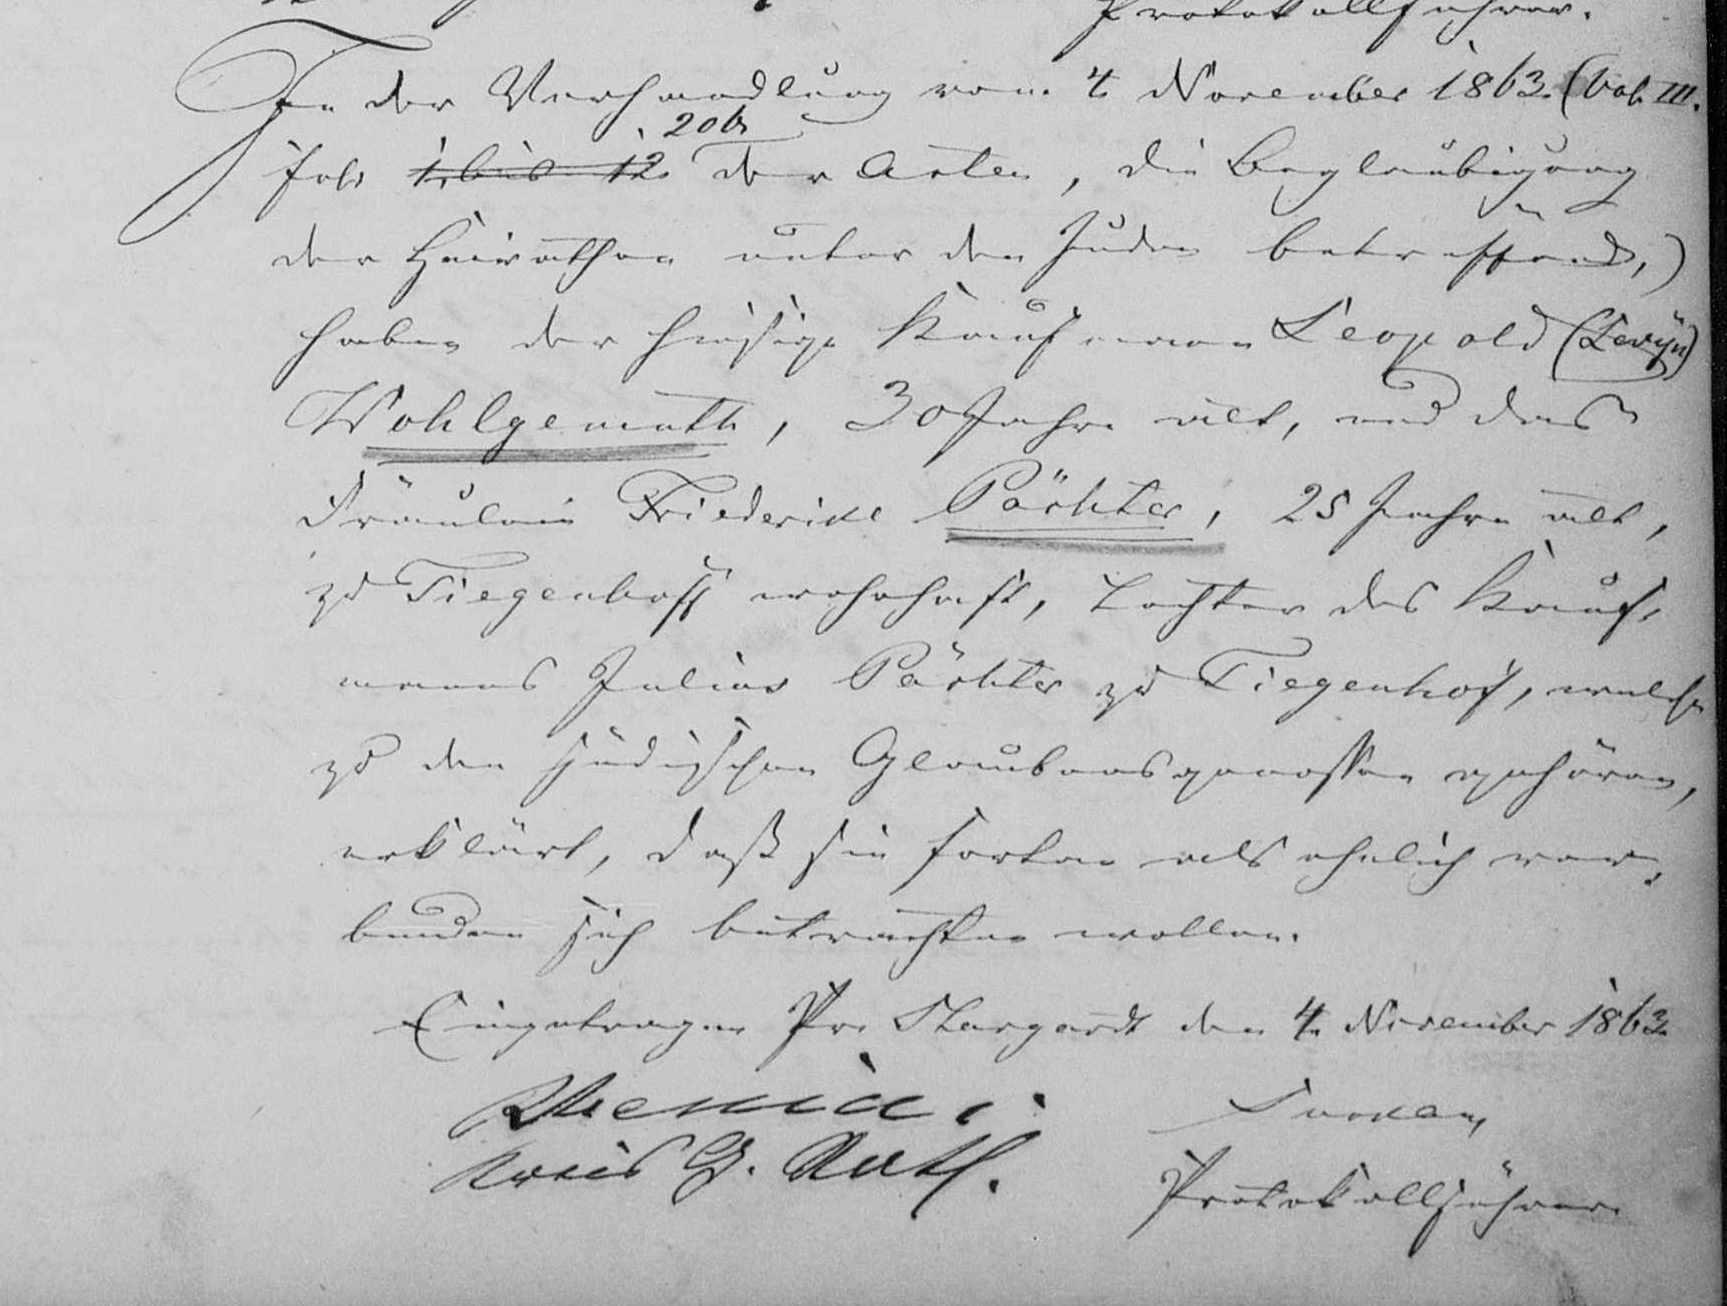 Protokollführer.
In der Verhandlung vom 4 November 1863 (Vol. III.
206
fol. 1. bis 12 der Acten, die Beglaubigung
der Heirathen unter den Juden betreffend,)
haben der hiesige Kaufmann Leopold (Levÿn)
Wohlgemuth, 30 Jahre alt, und das
Fräulein Friederike Pächter, 25 Jahre alt,
zu Tiegenhoff wohnhaft, Tochter des Kauf-
manns Julius Pächter zu Tiegenhof, welche
zu den jüdischen Glaubensgenossen gehören,
erklärt, daß sie fortan als ehelich ver-
bunden sich betrachten wollen.
Eingetragen Pr. Stargardt den 4. November 1863
Kreis G. Rath.
Protokollführer.